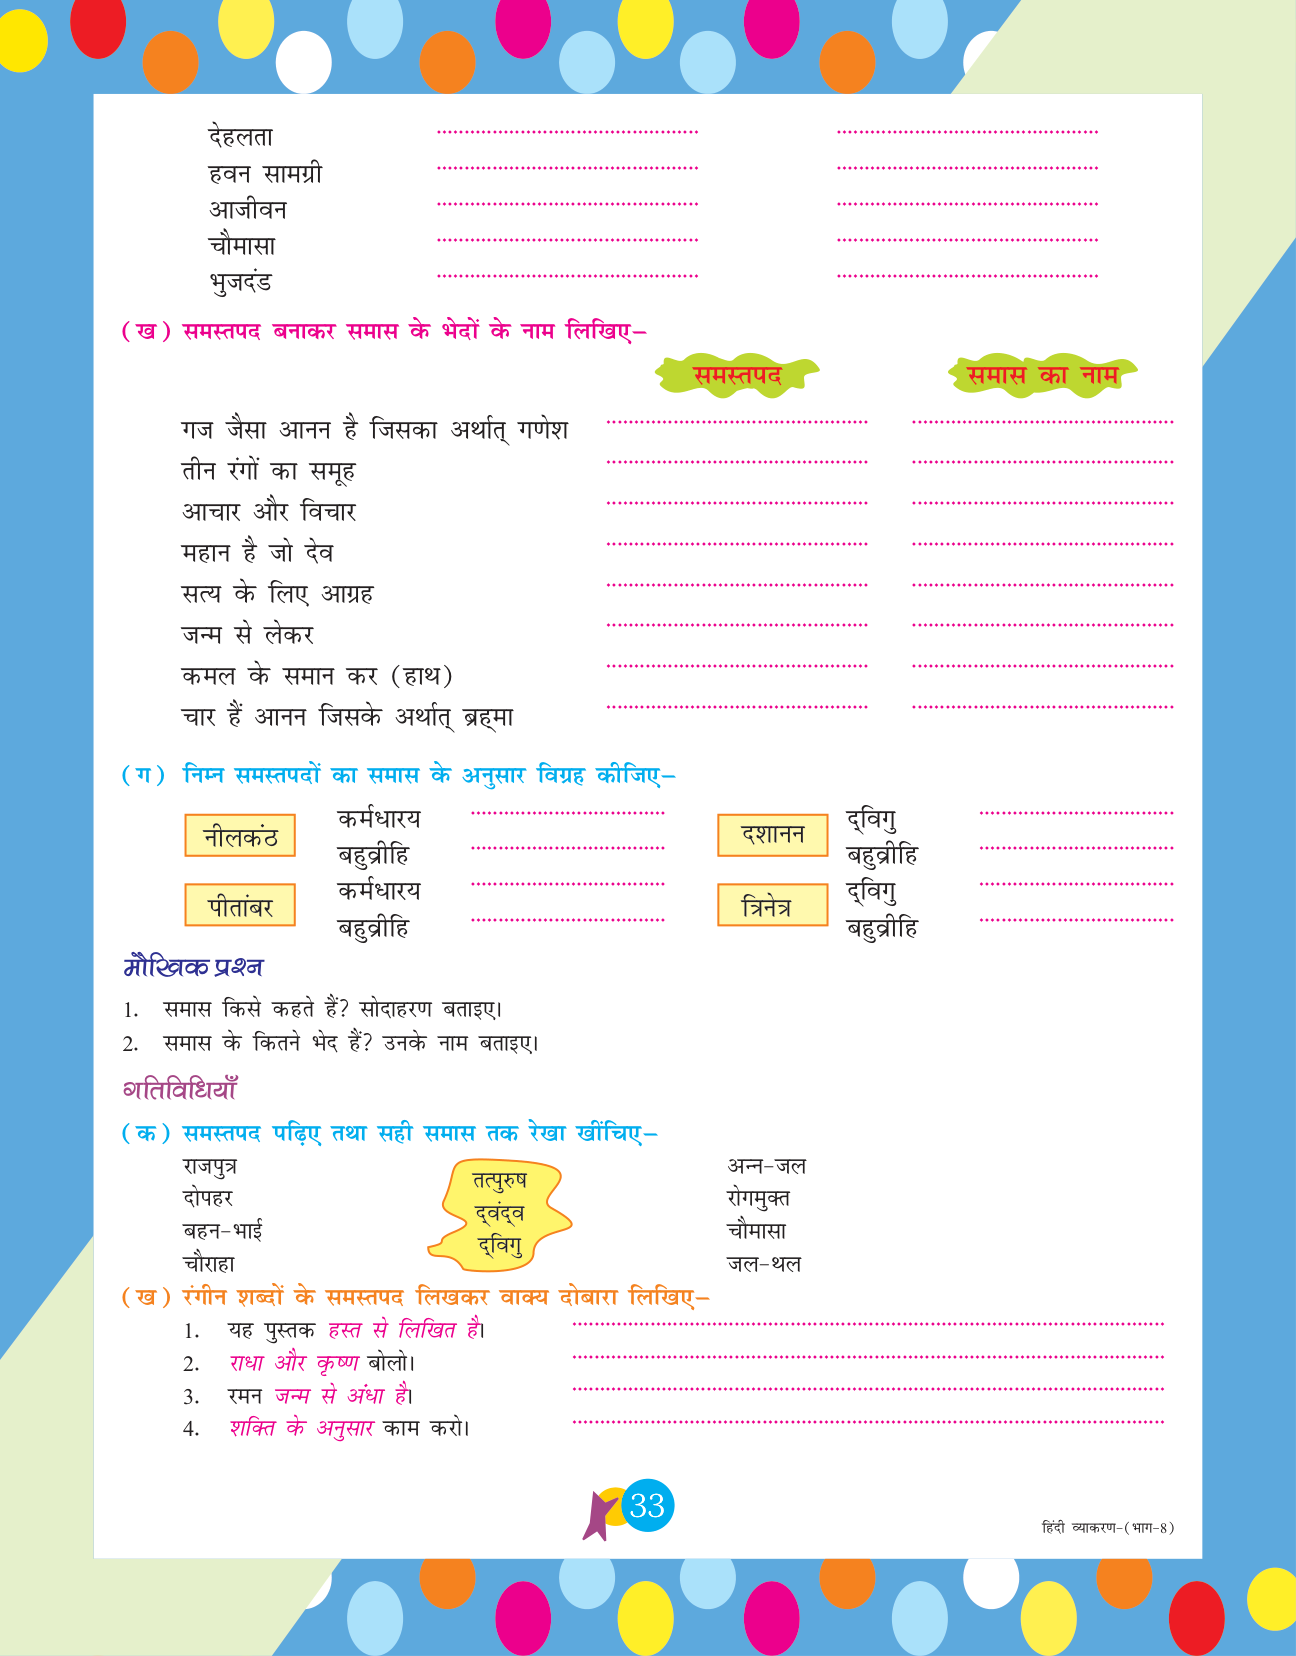 देहलता
हवन सामग्री
आजीवन
चौमासा
भुजदंड
(ख) समस्तपद बनाकर समास के भेदों के नाम लिखिए–
समस्तपद समास का नाम
गज जैसा आनन है जिसका अर्थात् गणेश
तीन रंगों का समूह
आचार और विचार
महान है जो देव
सत्य के लिए आग्रह
जन्म से लेकर
कमल के समान कर (हाथ)
चार हैं आनन जिसके अर्थात् ब्रह्‌मा
(ग) निम्न समस्तपदों का समास के अनुसार विग्रह कीजिए–
नीलकंठ कर्मधारय दशानन द्‌विगु
बहुव्रीहि बहुव्रीहि
पीतांबर कर्मधारय त्रिनेत्र द्‌विगु
बहुव्रीहि बहुव्रीहि
मौखिक प्रश्न
1. समास किसे कहते हैं? सोदाहरण बताइए।
2. समास के कितने भेद हैं? उनके नाम बताइए।
गतिविधियाँ
(क) समस्तपद पढ़िए तथा सही समास तक रेखा खींचिए–
राजपुत्र तत्पुरुष अन्न-जल
दोपहर द्‌वंद्‌व रोगमुक्त
बहन-भाई द्‌विगु चौमासा
चौराहा जल-थल
(ख) रंगीन शब्दों के समस्तपद लिखकर वाक्य दोबारा लिखिए–
1. यह पुस्तक हस्त से लिखित है।
2. राधा और कृष्ण बोलो।
3. रमन जन्म से अंधा है।
4. शक्ति के अनुसार काम करो।
33
हिंदी व्याकरण-(भाग-8)